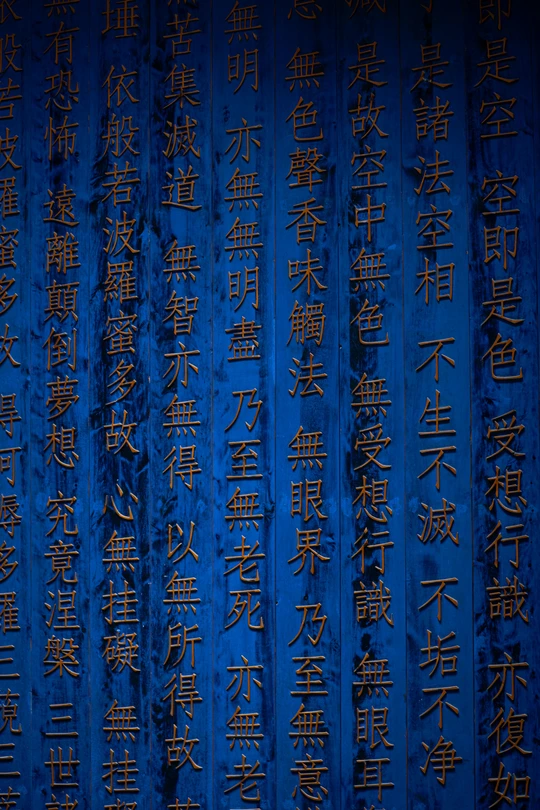 即是空 空即是色 受想行識 亦復如
是諸法空相 不生不滅 不垢不净
滅 是故空中無色 無受想行識 無眼耳
意 無色聲香味觸法 無眼界 乃至無意
無明 亦無無明盡 乃至無老死 亦無老
苦集滅道 無智亦無得 以無所得故 菩
埵 依般若波羅蜜多故 心無挂礙 無挂礙
無有恐怖 遠離顛倒夢想 究竟涅槃 三世諸
般若波羅蜜多故 得阿耨多羅三藐三